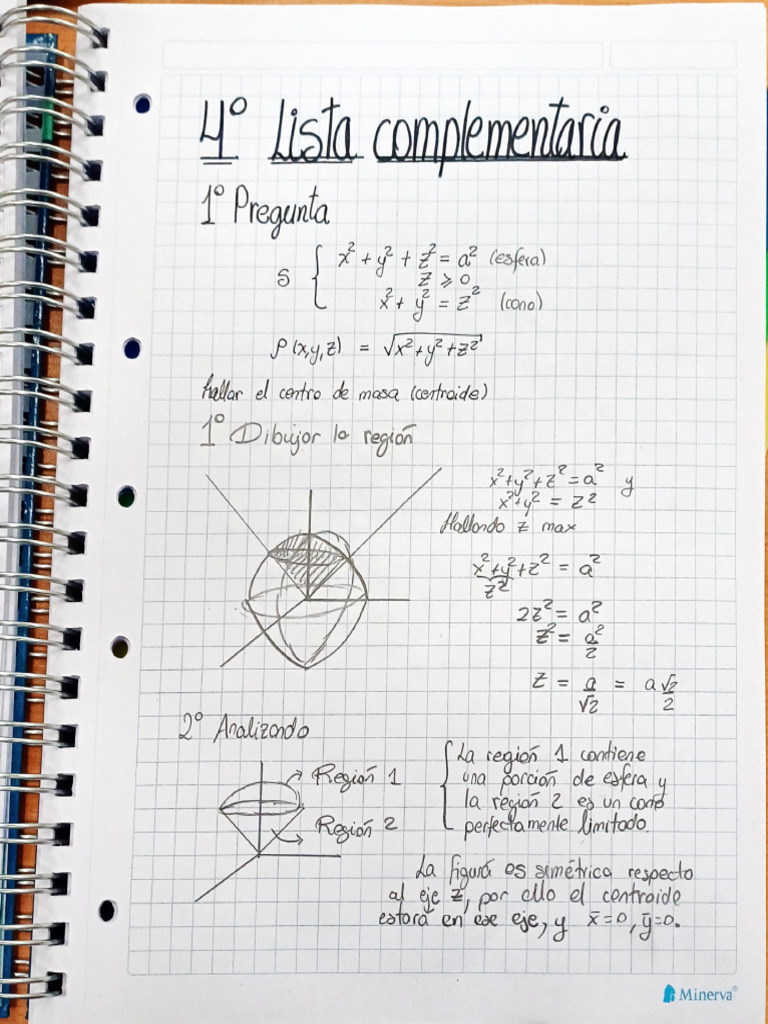 4° Lista complementaria
1° Pregunta
S { x² + y² + z² = a² (esfera)
z ≥ 0
x² + y² = z² (cono)
ρ(x,y,z) = √x² + y² + z²
hallar el centro de masa (centroide)
1° Dibujar la región
x²+y²+z²=a² y
x²+y² = z²
Hallando z max
x²+y²+z² = a²
z²
2z² = a²
z² = a²/2
z = a/√2 = a√2/2
2° Analizando
Región 1
Región 2
La región 1 contiene
una porción de esfera y
la región 2 es un cono
perfectamente limitado.
La figura es simétrica respecto
al eje z, por ello el centroide
estará en ese eje, y x̄=0, ȳ=0.
Minerva®